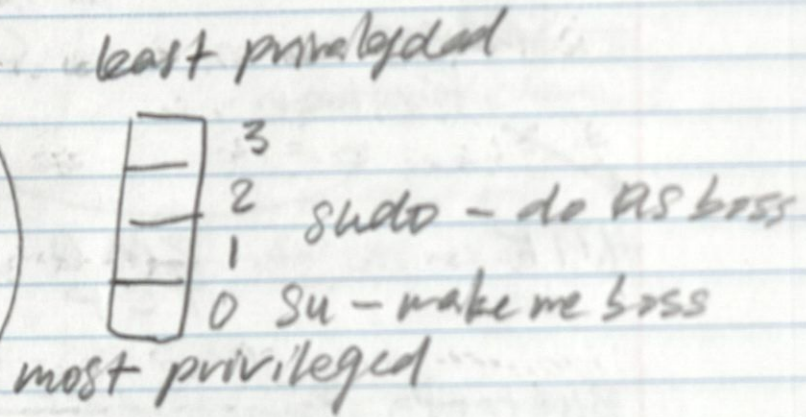 least privalegded
3
2
sudo - do as boss
1
0 su - make me boss
most privileged